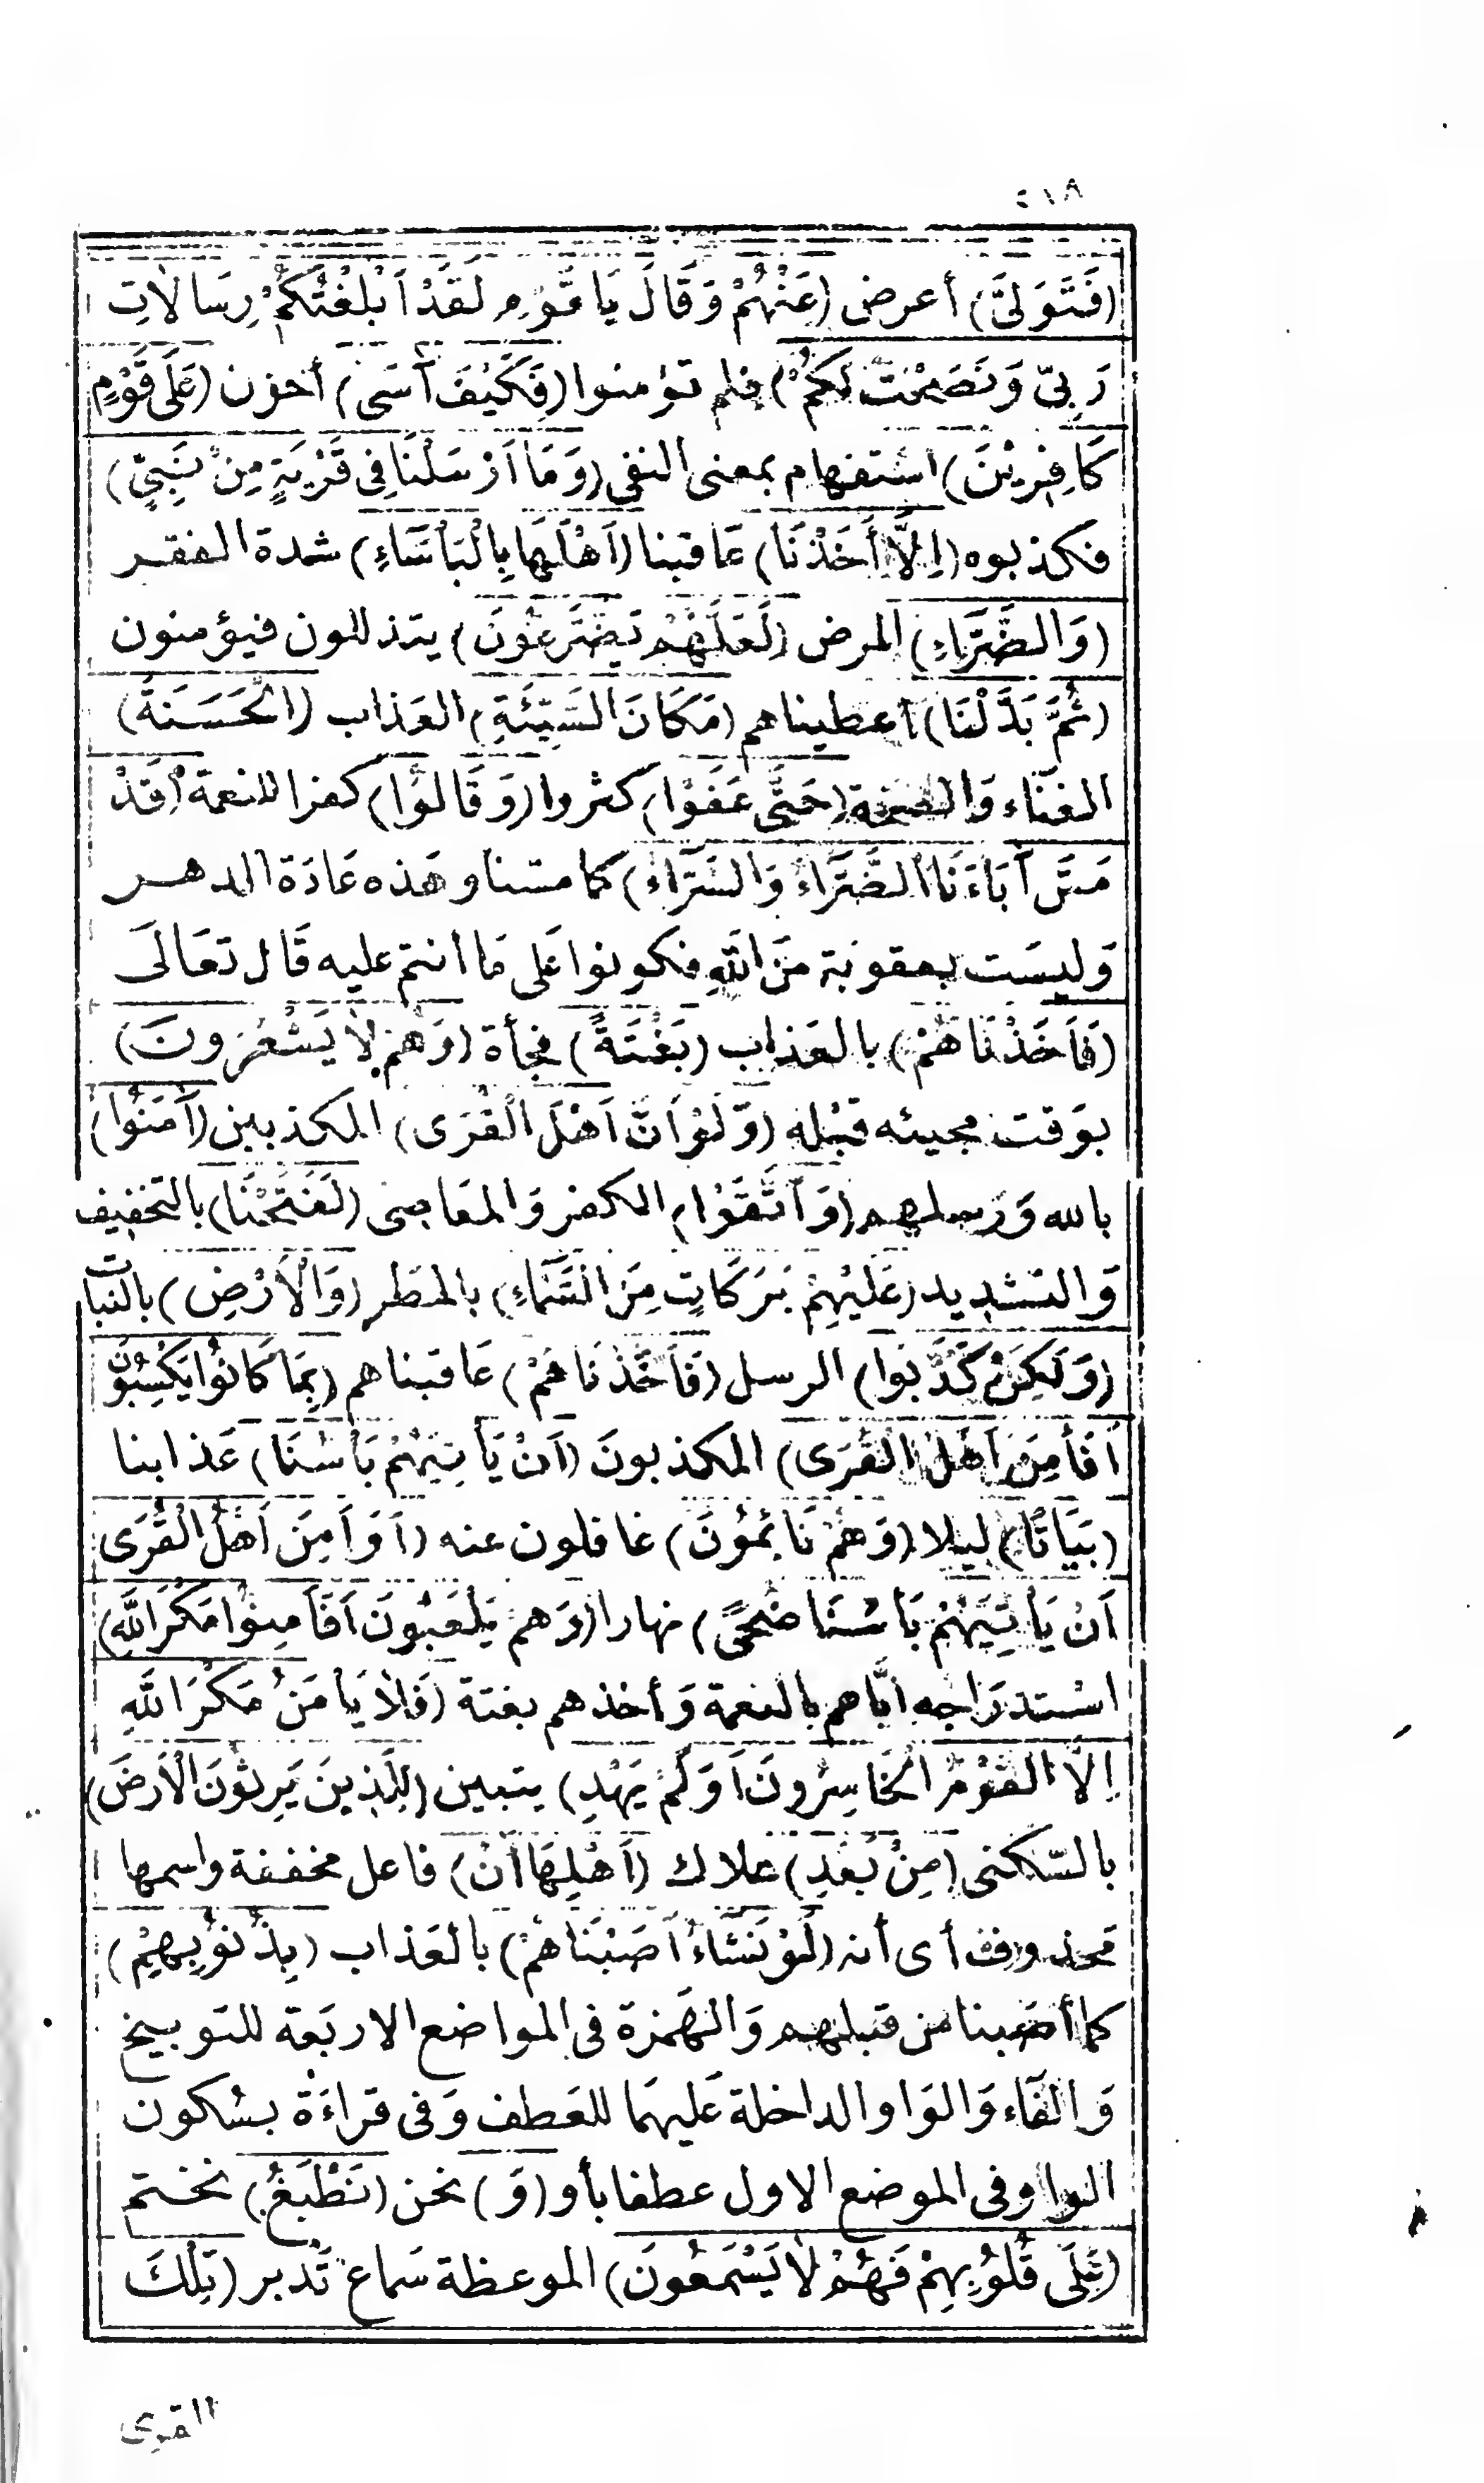 ٤١٨
(فَتَوَلَّىٰ) أعرض (عَنْهُمْ وَقَالَ يَا قَوْمِ لَقَدْ اَبْلَغْتُكُمْ رِسَالاَتِ
رَبِّى وَنَصَحْتُ لَكُمْ) فلم تؤمنوا (فَكَيْفَ آسَى) أحزن (عَلَى قَوْمٍ
كَافِرِيْنَ) استفهام بمعنى النفى (وَمَا اَرْسَلْنَا فِى قَرْيَةٍ مِنْ نَبِىٍّ)
فكذبوه (اِلاَّ أَخَذْنَا) عَاقبنا (اَهْلَهَا بِالْبَأْسَاءِ) شدة الفقر
(وَالضَّرَّاءِ) المرض (لَعَلَّهُمْ يَضَّرَّعُونَ) يتذللون فيؤمنون
(ثُمَّ بَدَّلْنَا) أعطيناهم (مَكَانَ السَّيِّئَةِ) العَذاب (الْحَسَنَةَ)
الغنَاء وَالصحة (حَتَّى عَفَوْا) كثروا (وَقَالُوا) كفرا للنعمة (قَدْ
مَسَّ آبَاءَنَا الضَّرَّاءُ وَالسَّرَّاءُ) كما مسنا وهَذه عَادَة الدهر
وَليسَت بعقوبَة منَ اللهِ فكونوا عَلى مَا أنتم عليه قَال تعَالَى
(فَاَخَذْنَاهُمْ) بالعَذاب (بَغْتَةً) فجأة (وَهُمْ لاَ يَشْعُرُونَ)
بوَقت مجيئه قبْله (وَلَوْ اَنَّ اَهْلَ الْقُرَى) المكذبين (آمَنُوا)
بالله وَرسلهم (وَاتَّقَوْا) الكفر وَالمعَاصى (لَفَتَحْنَا) بالتخفيف
وَالتشديد (عَلَيْهِمْ بَرَكَاتٍ مِنَ السَّمَاءِ) بالمطر (وَالْاَرْضِ) بالنبات
(وَلَكِنْ كَذَّبُوا) الرسل (فَاَخَذْنَاهُمْ) عَاقبناهم (بِمَا كَانُوا يَكْسِبُونَ
اَفَأَمِنَ اَهْلُ الْقُرَى) المكذبونَ (اَنْ يَأْتِيَهُمْ بَأْسُنَا) عَذابنا
(بَيَاتًا) ليلا (وَهُمْ نَائِمُونَ) غافلون عنه (اَوَاَمِنَ اَهْلُ الْقُرَى
اَنْ يَأْتِيَهُمْ بَأْسُنَا ضُحًى) نهارا (وَهم يَلْعَبُونَ اَفَأَمِنُوا مَكْرَ اللَّهِ)
استدرَاجه ايَّاهم بالنعمة وَأخذهم بغتة (فَلاَ يَأْمَنُ مَكْرَ اللَّهِ
اِلاَّ الْقَوْمُ الْخَاسِرُونَ اَوَلَمْ يَهْدِ) يتبين (لِلَّذِينَ يَرِثُونَ الْاَرْضَ)
بالسّكنى (مِنْ بَعْدِ) هلاك (اَهْلِهَا اَنْ) فاعل مخففة واسمها
مَحذوف أى أنه (لَوْ نَشَاءُ اَصَبْنَاهُمْ) بالعَذاب (بِذُنُوبِهِمْ)
كما أصَبنا من قبلهم وَالهَمزة فى المواضع الاربَعة للتوبيخ
وَالفَاء وَالوَاو الداخلة عَليهمَا للعَطف وَفى قراءَة بسُكون
الواو فى الموضع الاول عطفا بأو (وَ) نحن (نَطْبَعُ) نختم
(عَلَى قُلُوبِهِمْ فَهُمْ لاَ يَسْمَعُونَ) الموعظة سَماع تَدبر (تِلْكَ
القرى